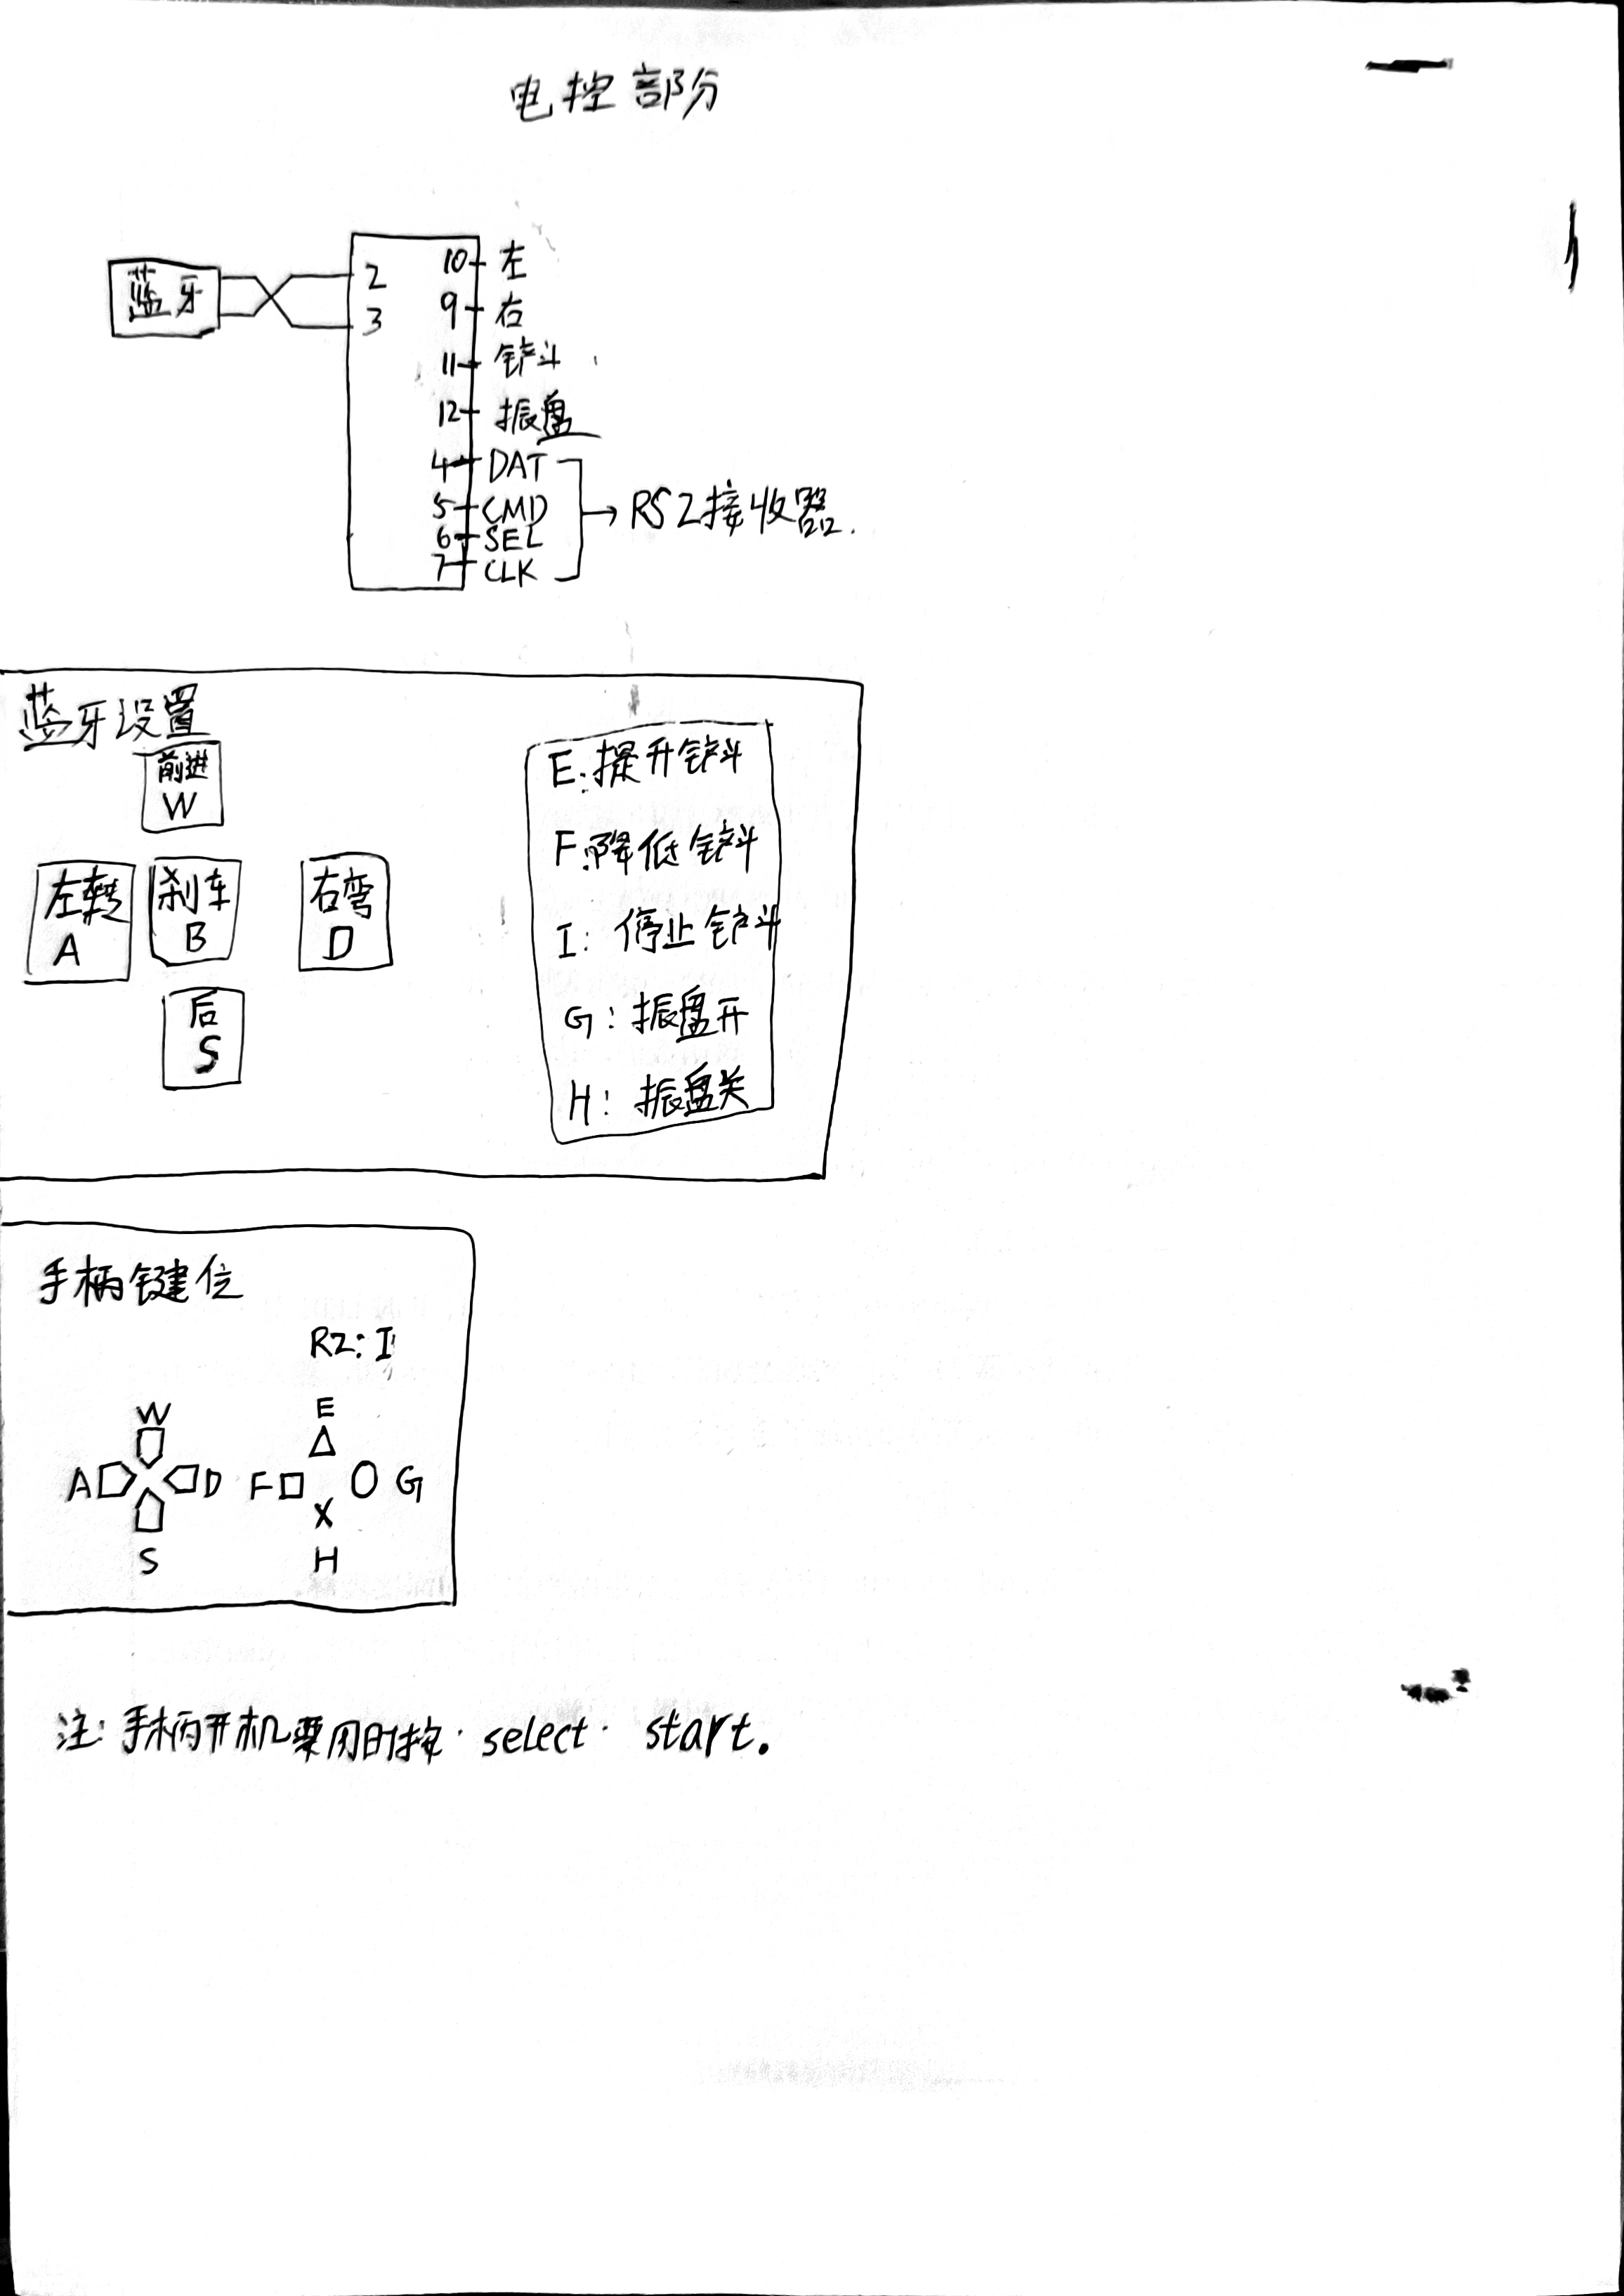 电控部分
蓝牙
2
3
10 左
9 右
11 铲斗
12 振盘
4 DAT
5 CMD
6 SEL
7 CLK
RS2接收器.
蓝牙设置
前进
W
左转
A
刹车
B
右弯
D
后
S
E:提升铲斗
F:降低铲斗
I: 停止铲斗
G: 振盘开
H: 振盘关
手柄键位
R2: I
W
A D
S
E
F □ O G
X
H
注: 手柄开机要同时按· select · start.